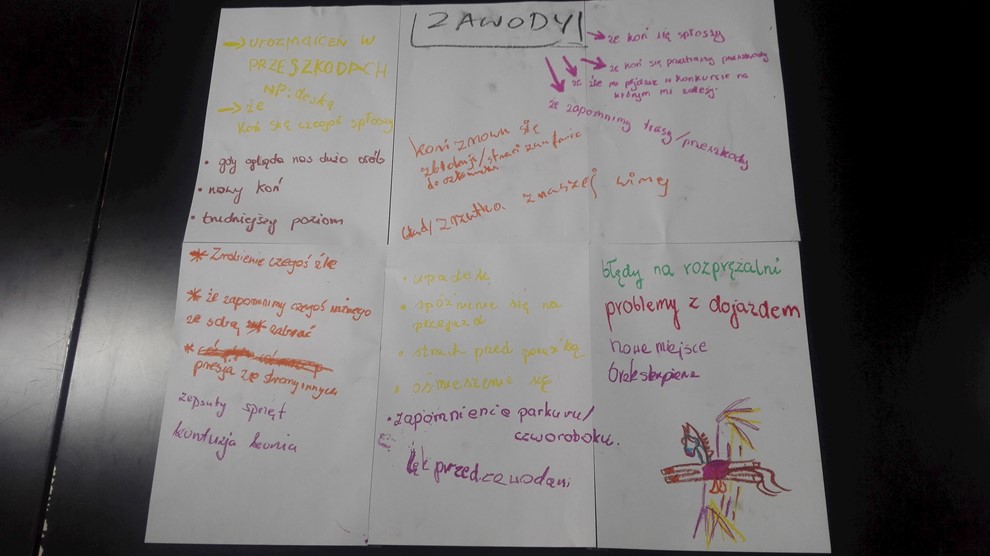 ZAWODY
→ UROZMAICEŃ W
PRZESZKODACH
NP: deską
→ że
koń się czegoś spłoszy
• gdy ogląda nas dużo osób
• nowy koń
• trudniejszy poziom
→ że koń się spłoszy
że koń się przeszkody
że źle mi pójdzie w konkursie na
którym mi zależy
że zapomnimy trasy/przeszkody
koń znowu się
zblokuje/straci zaufanie
do człowieka
błąd/zrzutka z naszej winy
* Zrobienie czegoś źle
* że zapomnimy czegoś ważnego
ze sobą zabrać
* presja ze strony innych
zepsuty sprzęt
kontuzja konia
• upadek
• spóźnienie się na
przejazd
• strach przed porażką
• ośmieszenie się
• zapomnienie parkuru/
czworoboku.
lęk przed zawodami
błędy na rozprężalni
problemy z dojazdem
nowe miejsce